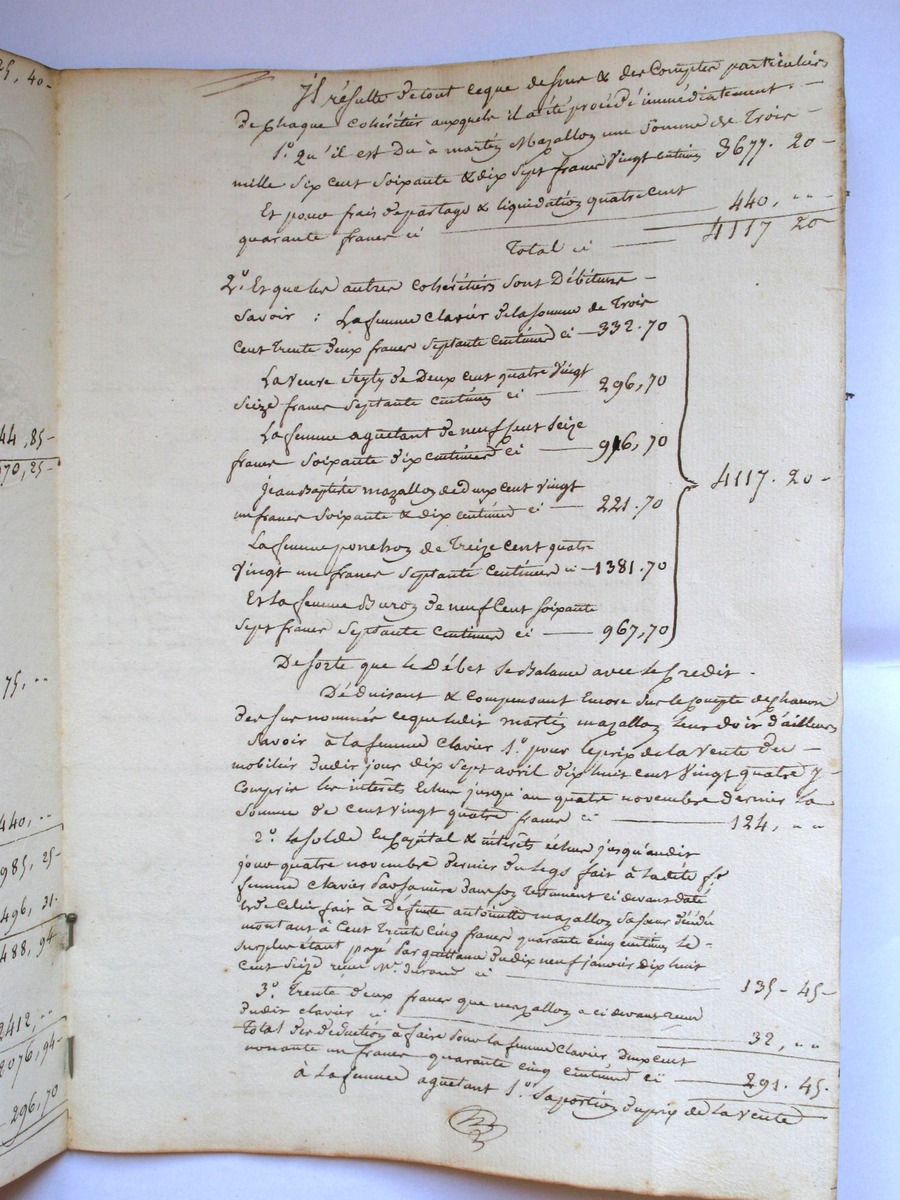 25, 40 -
44, 85 -
970, 25 -
75, "
440, "
985, 25 -
496, 31 -
488, 94
2412, "
2076, 94 -
296, 70
Il résulte de tout ce que dessus & des Comptes particuliers
de chaque cohéritier auxquels il a été procédé immédiatement. -
1.° qu'il est Du à martin Mazallon une Somme de Trois -
mille six cent soixante & dix sept francs vingt centimes 3677. 20 -
Et pour frais de partage & liquidation quatre cent
quarante francs ci 440, " -
Total ci 4117 20 -
2.° Et que les autres cohéritiers sont Débiteurs -
Savoir : La femme Clavier de la somme de Trois
Cent Trente deux francs septante centimes ci - 332. 70
La Veuve de Deux cent quatre vingt
seize francs septante centimes ci 296, 70
La femme aguetant de neuf cent seize
francs soixante dix centimes ci 916, 70
Jean Baptiste mazallon de deux cent vingt
un francs soixante & dix centimes ci 221. 70
La femme ponchon de Treize cent quatre
vingt un francs septante centimes ci - 1381. 70
Et la femme Buron de neuf cent soixante
sept francs septante centimes ci 967, 70
4117. 20 -
De sorte que le Débet se Balance avec le Credit.
Déduisant & compensant Encore sur le compte de chacun
des sus nommés ce que ledit martin mazallon leur doit d'ailleurs
Savoir à la femme Clavier 1.° pour le prix de la vente des -
mobiliers dudit jour dix sept avril dix huit cent vingt quatre y
compris les intérêts Echus jusqu'au quatre novembre dernier la
somme de cent vingt quatre francs ci 124, "
2.° La solde En capital & intérêts échus jusqu'audit
jour quatre novembre dernier du Legs fait à ladite fe
femme Clavier par dans son Testament ci devant daté
& de Celui fait à Défunte antoinette mazallon sa sœur
montant à Cent Trente Cinq francs quarante cinq centimes Le -
surplus étant payé par quittance du dix neuf janvier dix huit
Cent seize reçu M.e Durand ci 135 - 45 -
3.° Trente deux francs que mazallon a ci devant reçu
dudit clavier ci 32, "
Total des déductions à faire pour la femme Clavier, deux cent
nonante un francs quarante cinq centimes ci 291. 45.
à La femme aguetant 1.° sa portion du prix de la vente